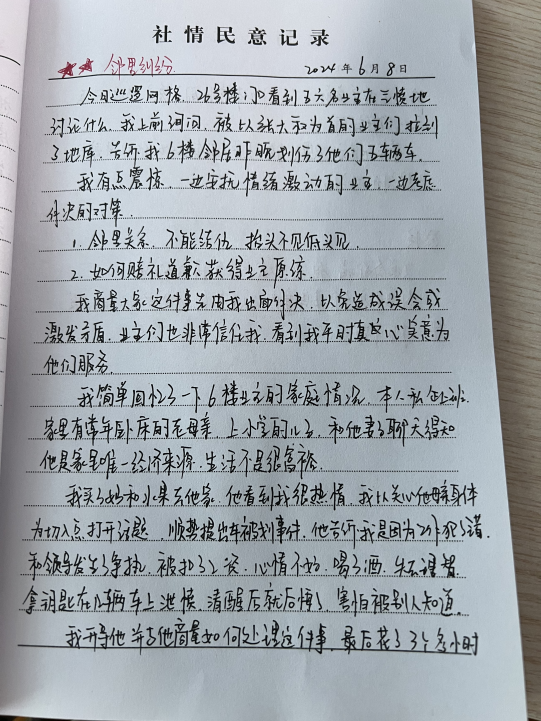 社情民意记录
★★ 邻里纠纷 2024年6月8日
今日巡逻网格,26号楼门口看到五六名业主在三愤地
讨论什么,我上前询问,被以张大和为首的业主们拉到
了地库,告诉我6楼邻居昨晚划伤了他们五辆车。
我有点震惊,一边安抚情绪激动的业主,一边考虑
解决的对策。
1.邻里关系,不能结仇,抬头不见低头见。
2.如何赔礼道歉获得业主原谅
我商量大家这件事先由我出面解决,以免造成误会或
激发矛盾,业主们也非常信任我,看到我平时真心实意为
他们服务。
我简单回忆了一下6楼业主的家庭情况,本人私企上班,
家里有常年卧床的老母亲,上小学的儿子,和他妻子聊天得知
他是家里唯一经济来源,生活不是很富裕。
我买了奶和水果去他家,他看到我很热情,我以关心他母亲身体
为切入点打开话题,顺势提出车被划事件,他告诉我是因为工作犯了错,
和领导发生了争执,被扣了工资,心情不好,喝了酒,失去理智
拿钥匙在几辆车上泄愤,清醒后就后悔了,害怕被别人知道。
我开导他并与他商量如何处理这件事,最后花了3个多小时